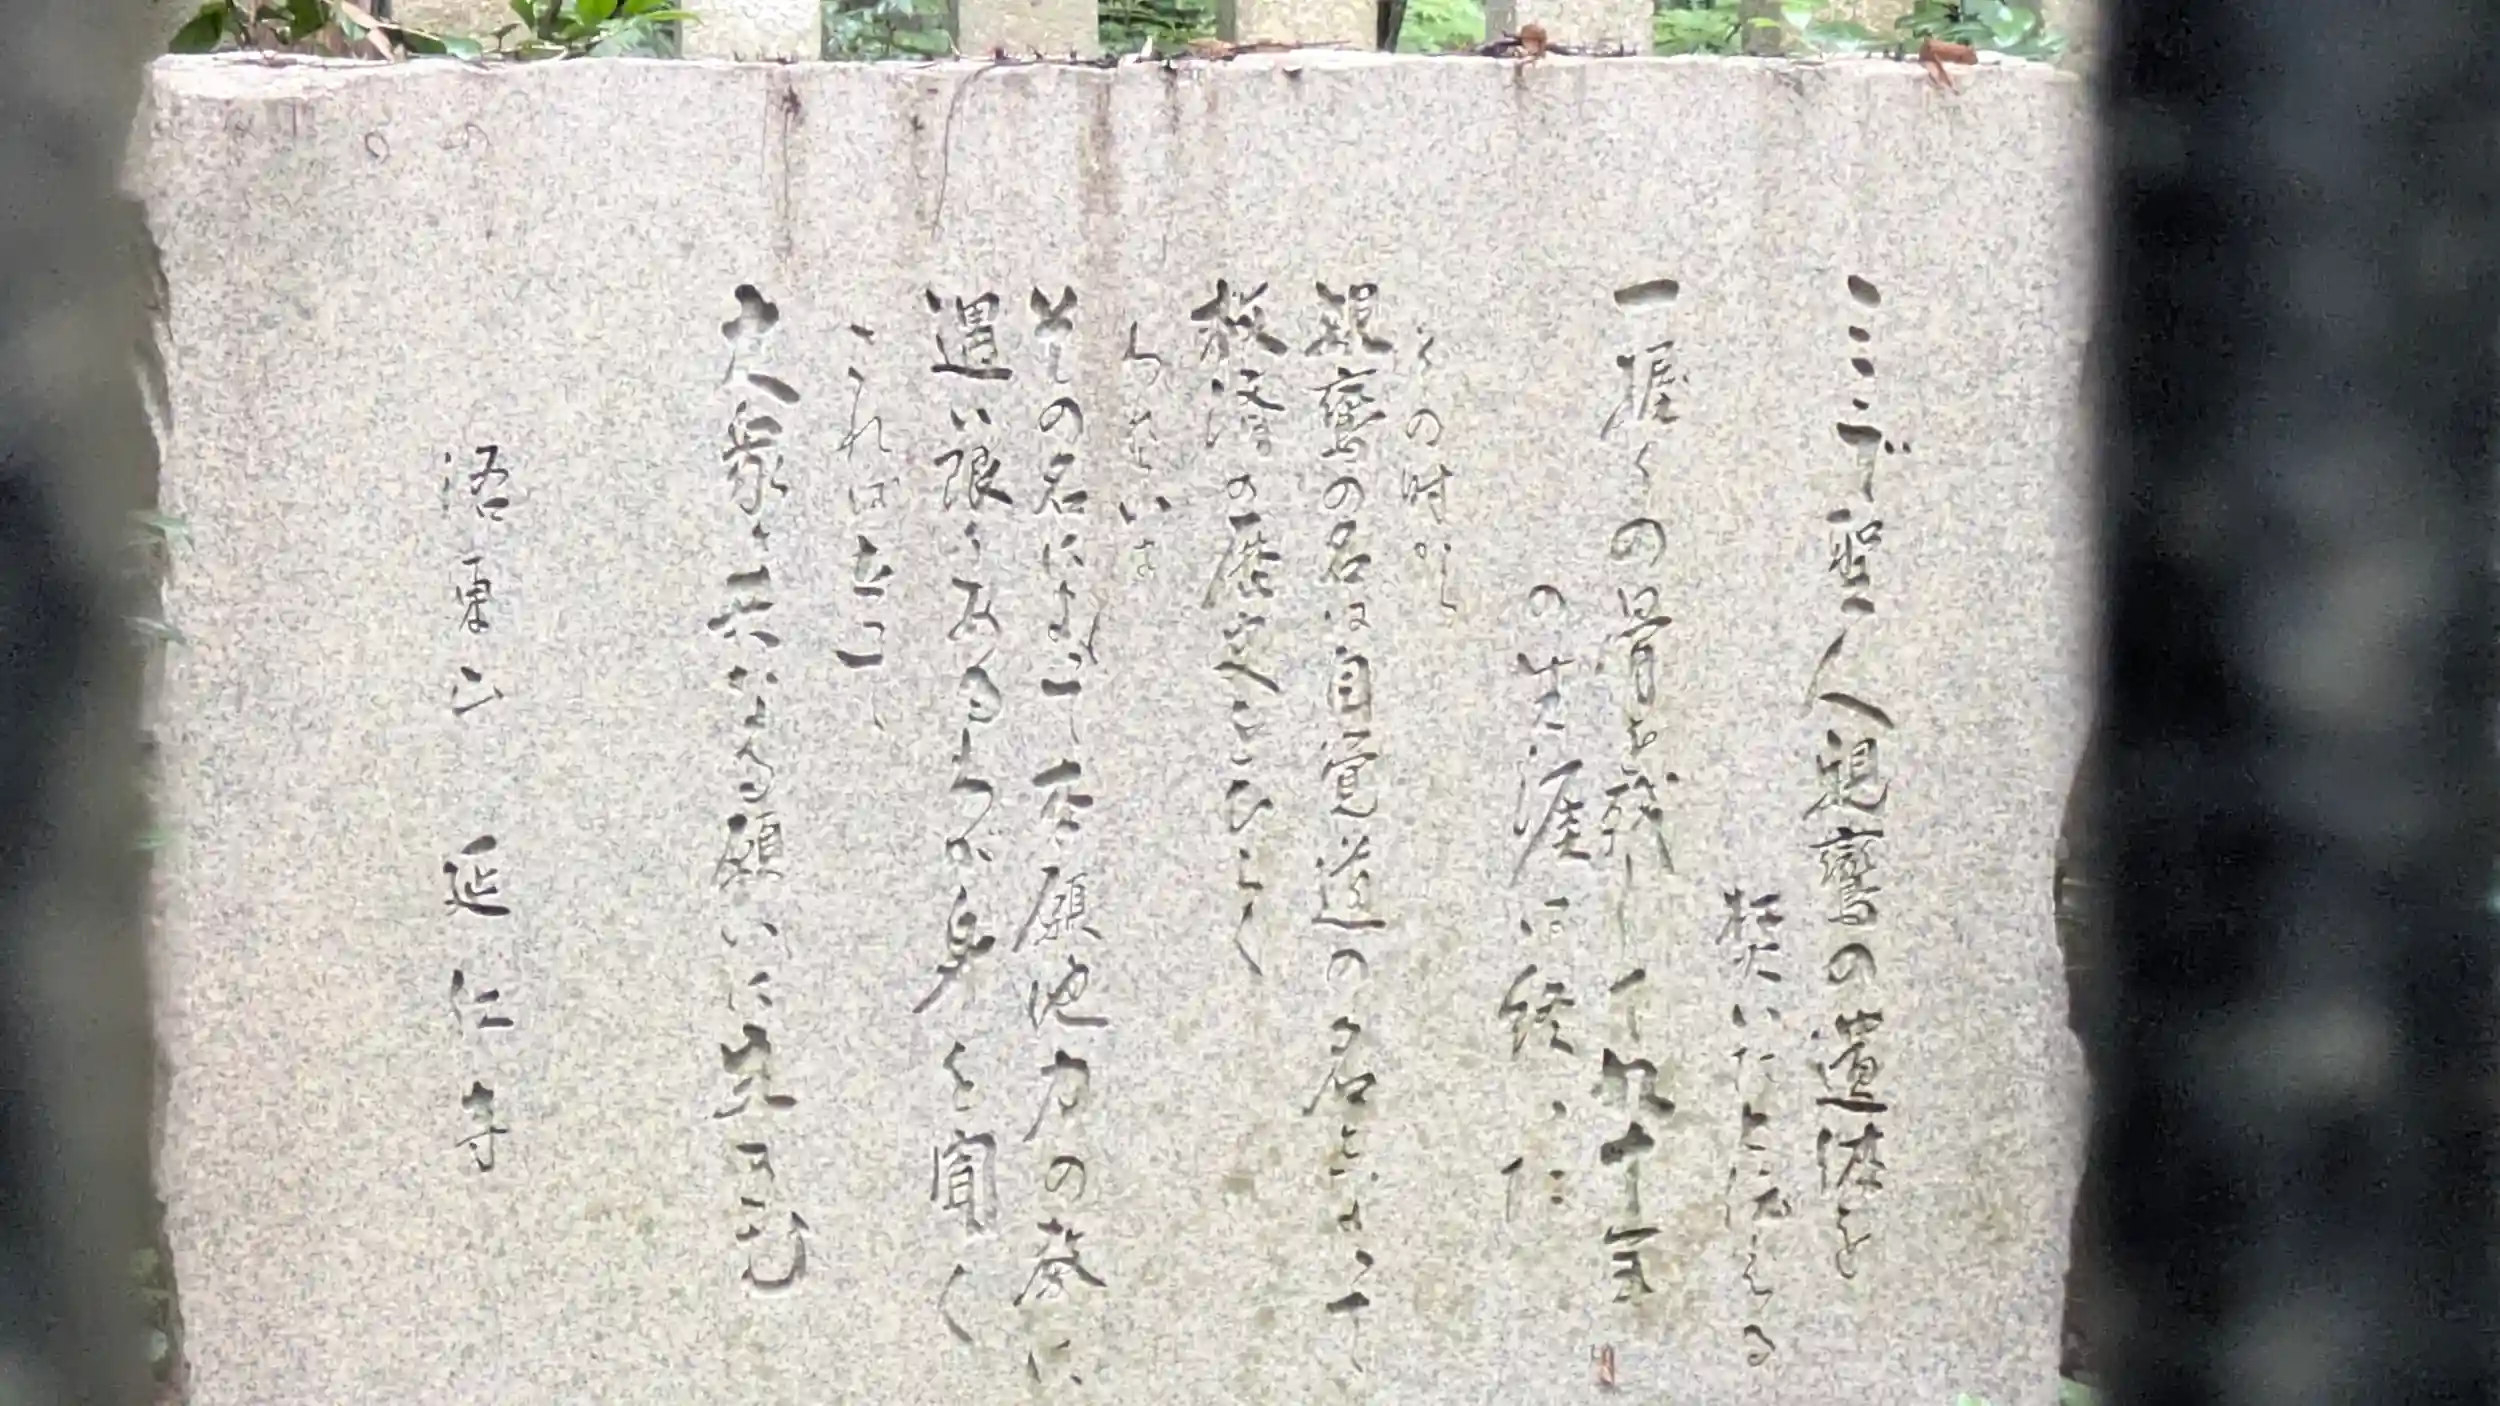 ここで聖人親鸞の遺体を
焚いたと伝える
一握りの骨を残して九十年
の生涯は終った
その時から
親鸞の名は自覚道の名となって
救済の歴史をひらく
いま
その名によって本願他力の教に
遇い限りあるわが身を聞く
されば立って
大衆と共なる願いに生きむ
洛東山 延仁寺